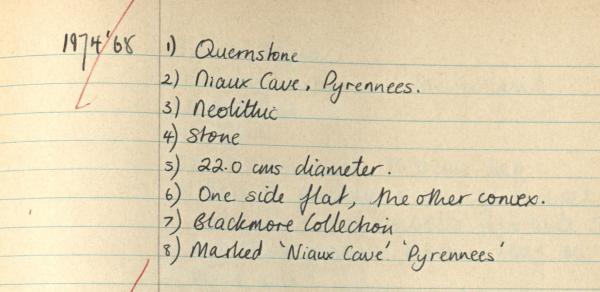 1974'68 1) Quernstone
2) Niaux Cave, Pyrennees.
3) Neolithic
4) Stone
5) 22.0 cms diameter.
6) One side flat, the other convex.
7) Blackmore Collection
8) Marked 'Niaux Cave' 'Pyrennees'